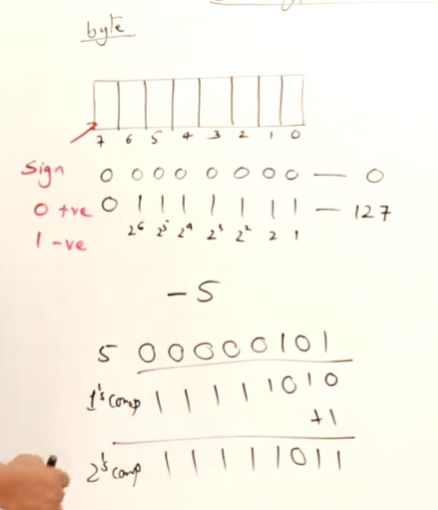 byte
7 6 5 4 3 2 1 0
Sign 0 0 0 0 0 0 0 0 — 0
0 +ve 0 1 1 1 1 1 1 1 — 127
1 -ve 2⁶ 2⁵ 2⁴ 2³ 2² 2 1
-5
5 0 0 0 0 0 1 0 1
1's comp 1 1 1 1 1 0 1 0
+1
2's comp 1 1 1 1 1 0 1 1